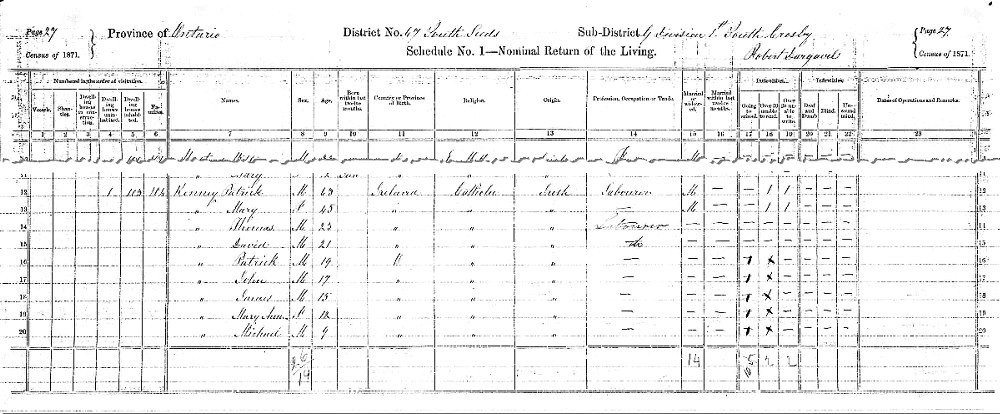 Page 27
Census of 1871.
Province of Ontario District No. 67 South Leeds Sub-District G division 1 South Crosby
Schedule No. 1—Nominal Return of the Living.
Robert
Page 27
Census of 1871.
Numbered in the order of visitation. Names. Sex. Age. Born within last twelve months. Country or Province of Birth. Religion. Origin. Profession, Occupation or Trade. Married or widowed. Married within last twelve months. Instruction. Infirmities. Dates of Operations and Remarks.
Vessels. Shanties. Dwelling houses in construction. Dwelling houses uninhabited. Dwelling houses inhabited. Families. Going to school. Over 20 unable to read. Over 20 unable to write. Deaf and Dumb. Blind. Unsound mind.
1 2 3 4 5 6 7 8 9 10 11 12 13 14 15 16 17 18 19 20 21 22 23
11 Mary
12 1 103 104 Kenny Patrick M 63 Ireland Catholic Irish Labourer M — — 1 1 — — — 12
13 " Mary F 45 " " " — M — — 1 1 — — — 13
14 " Thomas M 23 " " " Labourer — — — — — — — — 14
15 " David M 21 " " " do — — — — — — — — 15
16 " Patrick M 19 " " " — — — 1 x — — — — 16
17 " John M 17 " " — — — 1 x — — — — 17
18 " James M 15 " " " — — — 1 x — — — — 18
19 " Mary Ann F 12 " " " — — — 1 x — — — — 19
20 " Michael M 9 " " " — — — 1 x — — — — 20
6 14 14 5 2 2